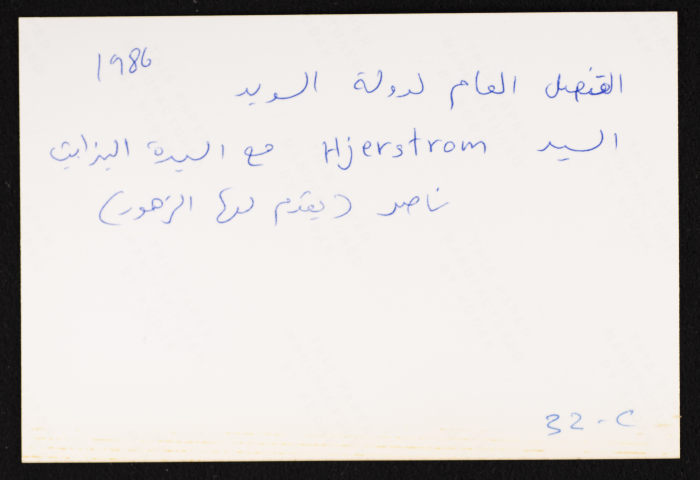 1986
القنصل العام لدولة السويد
السيد Hjerstrom مع السيدة اليزابيث
ناصر (يقدم لها الزهور)
32-C